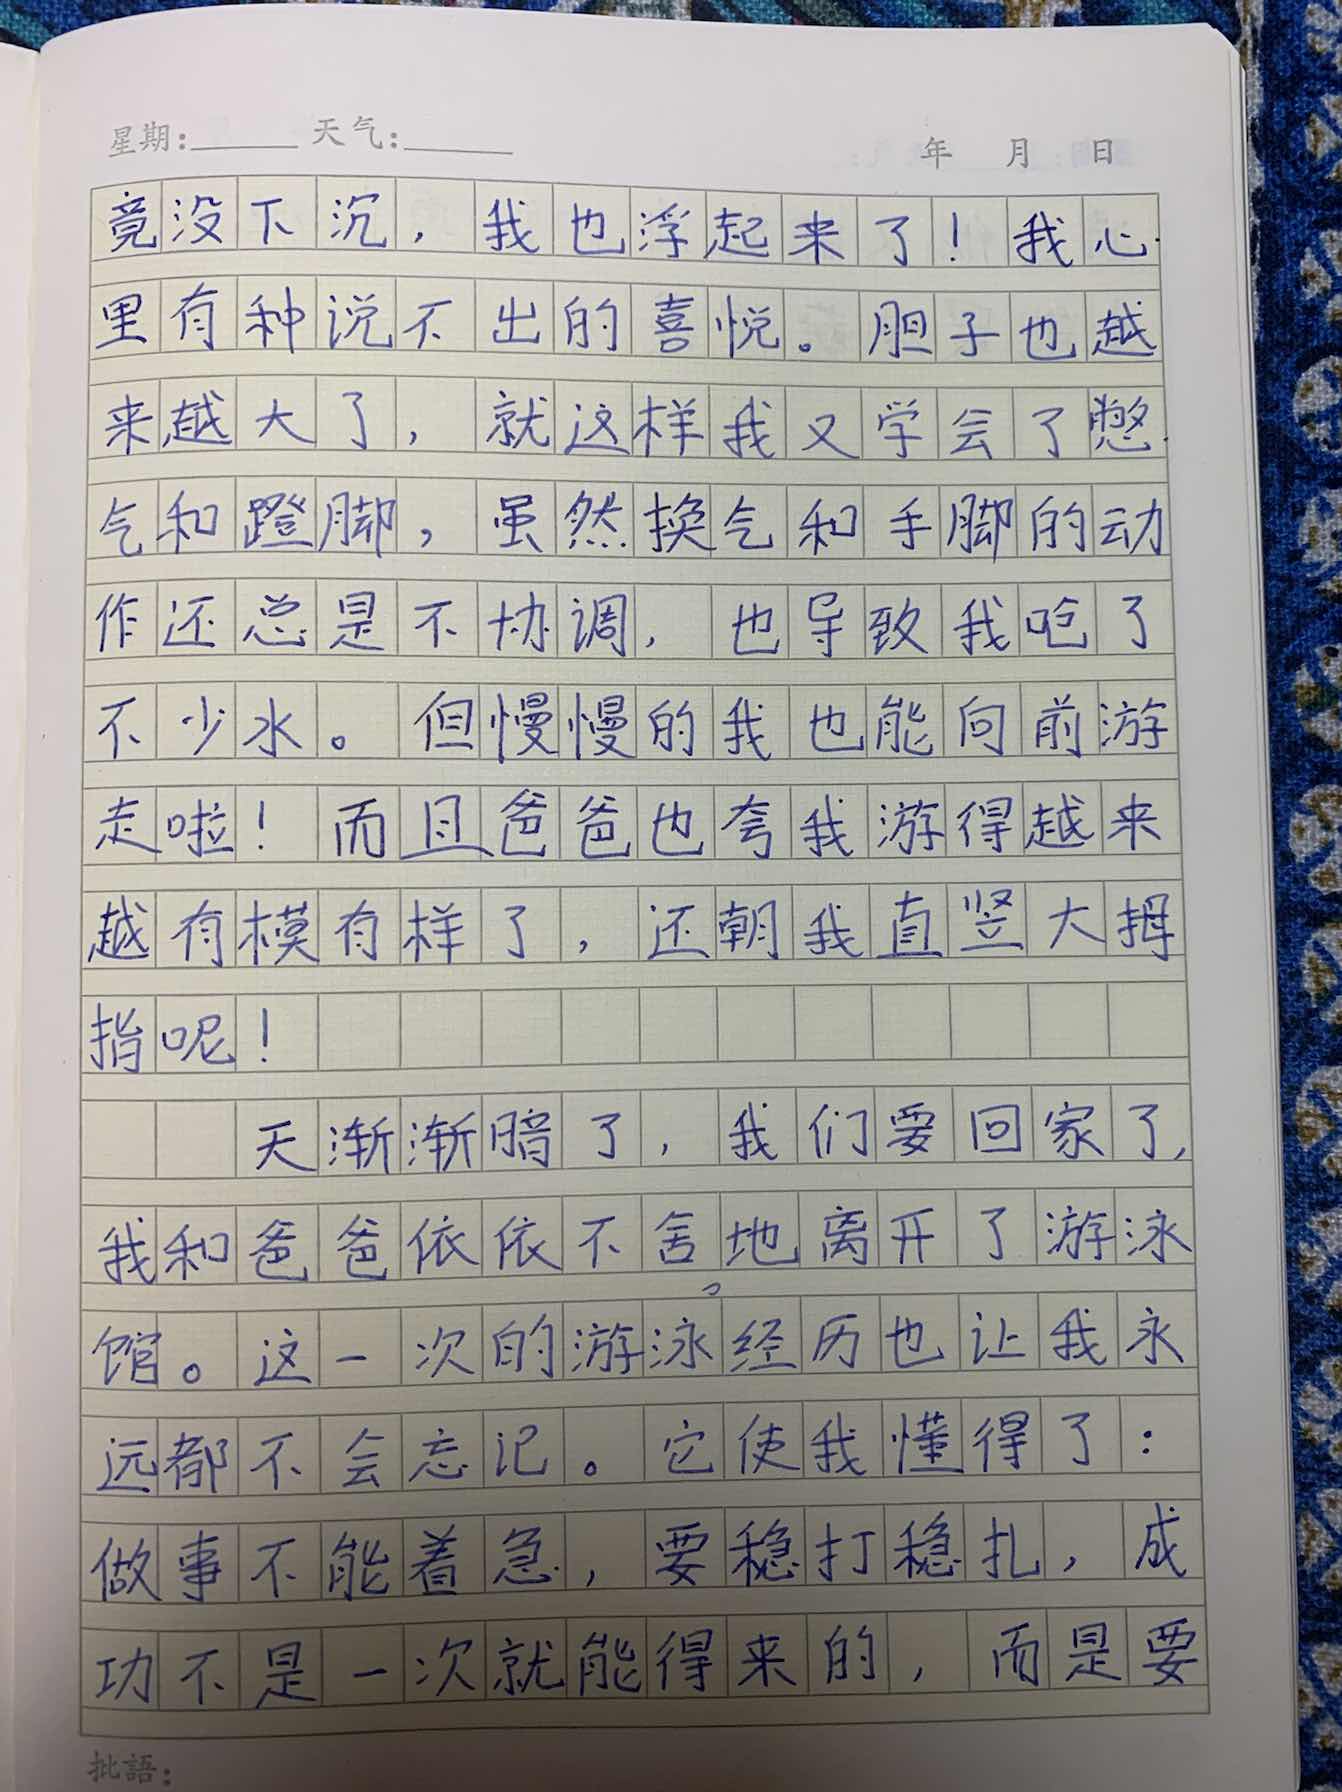 星期：______天气：______ 年 月 日
竟没下沉，我也浮起来了！我心
里有种说不出的喜悦。胆子也越
来越大了，就这样我又学会了憋
气和蹬脚，虽然换气和手脚的动
作还总是不协调，也导致我呛了
不少水。但慢慢的我也能向前游
走啦！而且爸爸也夸我游得越来
越有模有样了，还朝我直竖大拇
指呢！
天渐渐暗了，我们要回家了，
我和爸爸依依不舍地离开了游泳
馆。这一次的游泳经历也让我永
远都不会忘记。它使我懂得了：
做事不能着急，要稳打稳扎，成
功不是一次就能得来的，而是要
批語：